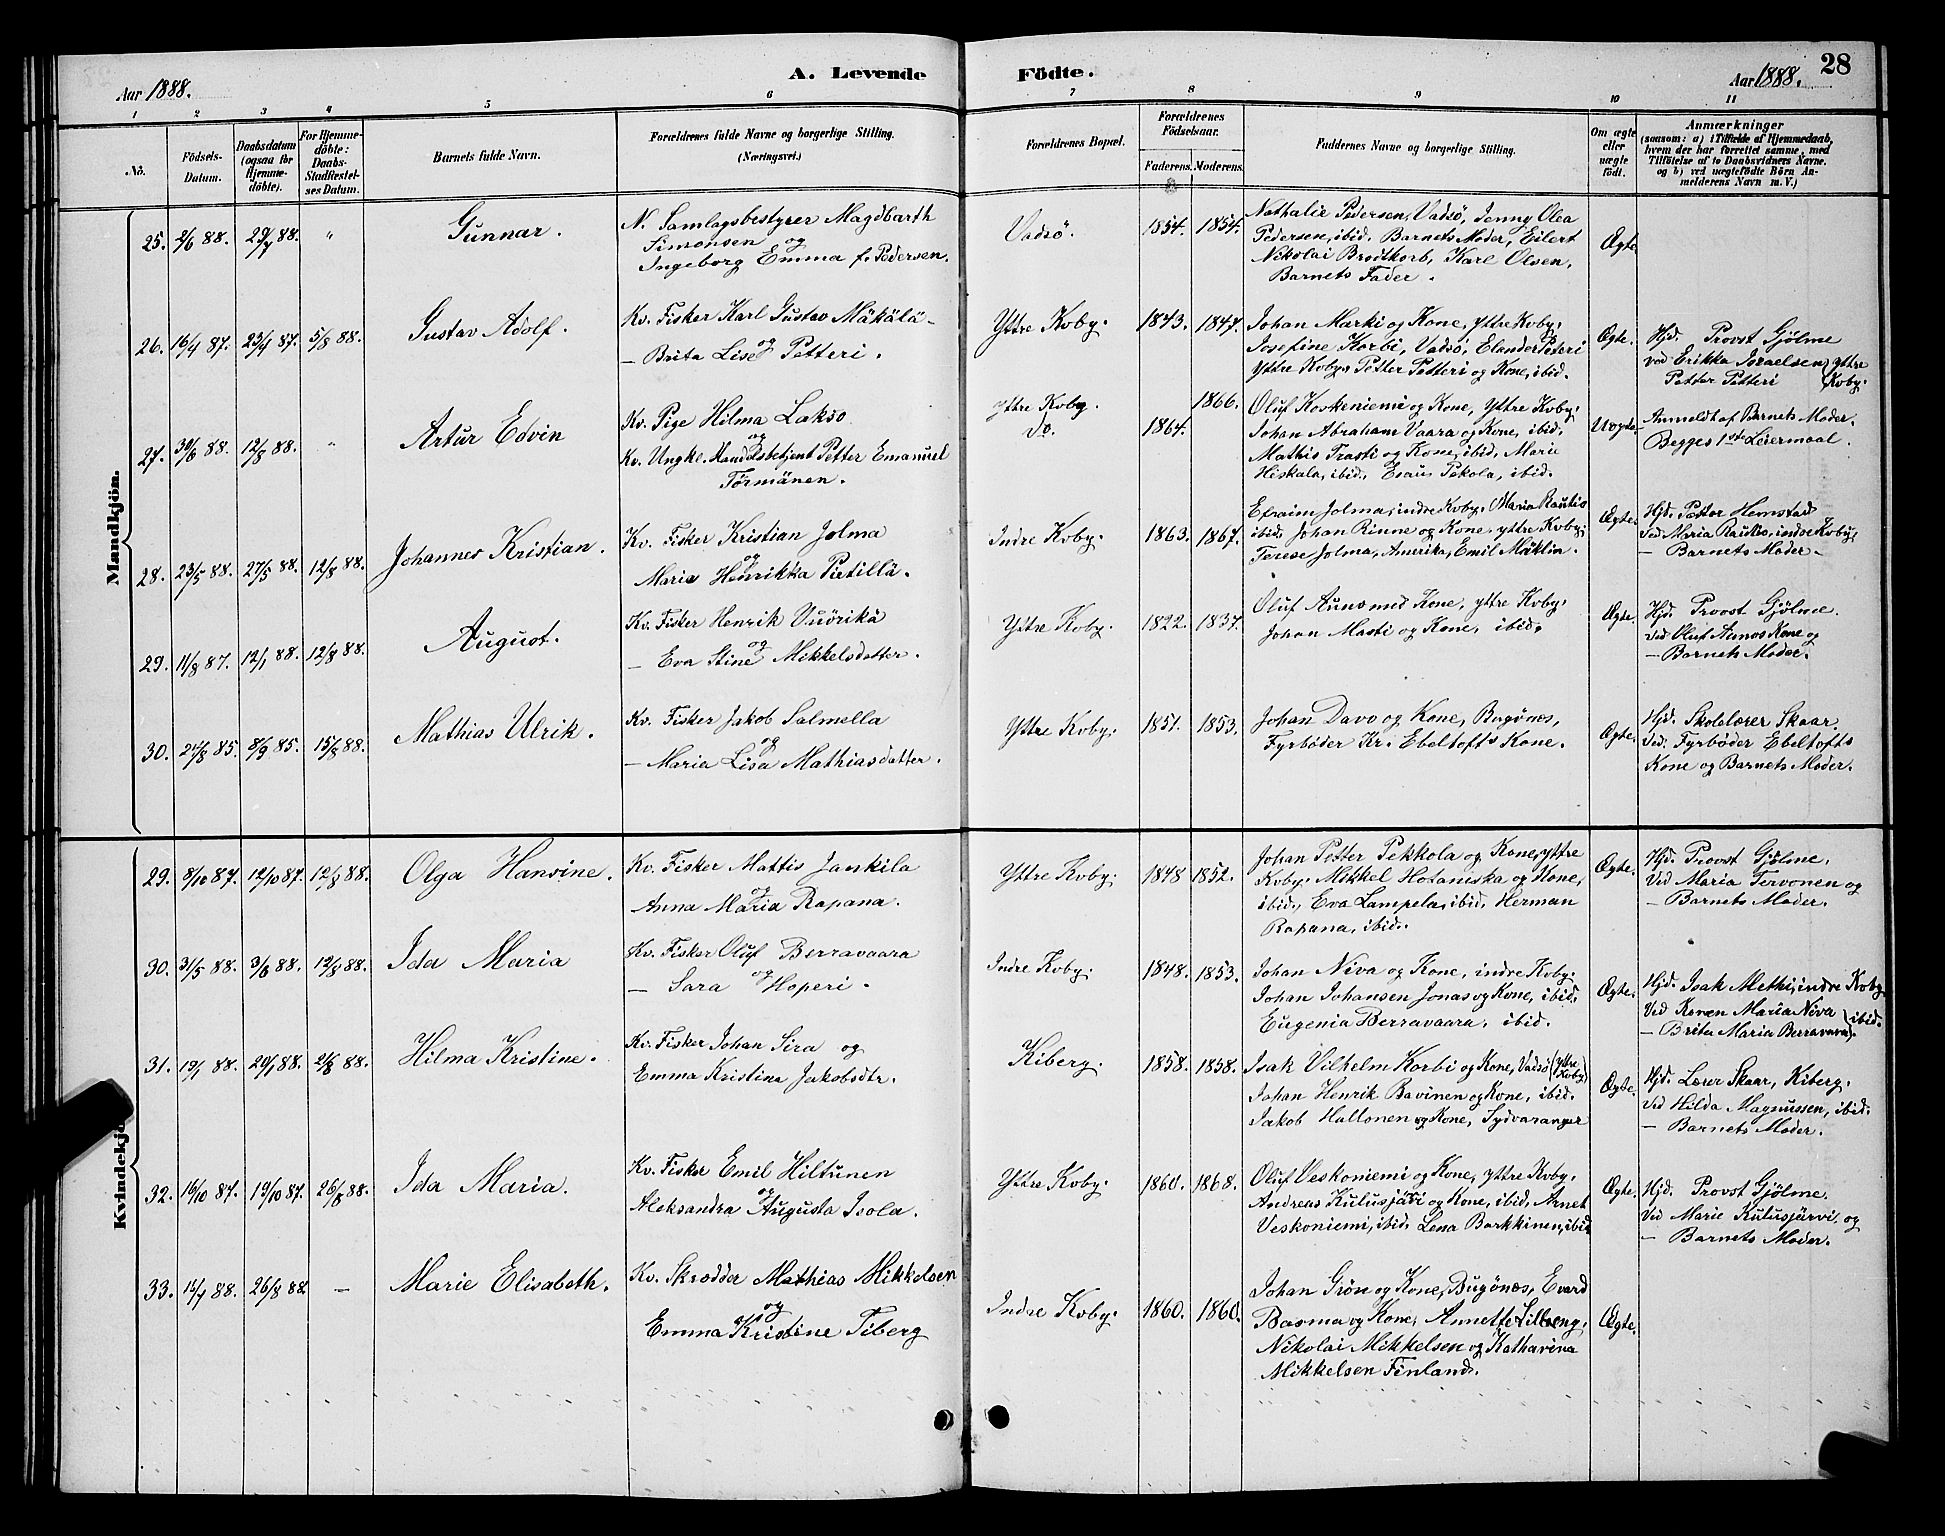 28
Aar 1888.
A. Levende Födte.
Aar 1888.
1 2 3 4 5 6 7 8 9 10 11
No.
Födsels-Datum.
Daabsdatum (ogsaa for Hjemmedöbte).
For Hjemmedöbte: Daabs-Stadfæstelses Datum.
Barnets fulde Navn.
Forældrenes fulde Navne og borgerlige Stilling. (Næringsvei.)
Forældrenes Bopæl.
Forældrenes Födselsaar.
Faderens. Moderens.
Faddernes Navne og borgerlige Stilling.
Om ægte eller uægte födt.
Anmærkninger
(saasom: a) i Tilfælde af Hjemmedaab, hvem der har forrettet samme, med Tilföielse af to Daabsvidners Navne. og b) ved uægtefödte Börn Anmelderens Navn m. V.)
Mandkjön.
25. 2/6 88. 29/7 88. " Gunnar.
N. Samlagsbestyrer Magdbarth
Simonsen og
Ingeborg Emma f. Pedersen.
Vadsö. 1854. 1854.
Nathalie Pedersen, Vadsö, Jenny Olea
Pedersen, ibid. Barnets Moder, Eilert
Nikolai Brodtkorb, Karl Olsen,
Barnets Fader.
Ægte.
26. 16/4 87. 23/4 87. 5/8 88. Gustav Adolf.
Kv. Fisker Karl Gustav Mäkälä
og
— Brita Lise Petteri.
Yttre Koby. 1843. 1847.
Johan Marki og Kone, Yttre Koby.
Josefine Korbi, Vadsö, Elander Peteri
Yttre Koby. Petter Petteri og Kone, ibid.
Ægte.
Hjd. Provst Gjölme
ved Erikka Israelsen (Yttre
Petter Petteri (Koby.
27. 30/6 88. 12/8 88. " Artur Edvin
Kv. Pige Hilma Lakso
og
Kv. Ungk. Handelsbetjent Petter Emanuel
Törmänen.
Yttre Koby.
Do. 1864. 1866.
Oluf Kovkeniemi og Kone, Yttre Koby.
Johan Abraham Vaara og Kone, ibid.
Mathis Trasti og Kone, ibid, Marie
Hiskala, ibid., Esaus Pekola, ibid.
Uægte.
Anmeldt af Barnets Moder.
Begges 1ste Leiermaal.
28. 23/5 88. 27/5 88. 12/8 88. Johannes Kristian.
Kv. Fisker Kristian Jolma
og
Maria Henrikka Pietillä.
Indre Koby. 1863. 1867.
Efraim Jolma, indre Koby. Maria Rautio
ibid. Johan Rinne og Kone. yttre Koby.
Terese Jolma, Amerika, Emil Mäklin.
Ægte.
Hjd. Pastor Hemstad
Ved Maria Rautio, indre Koby,
— Barnets Moder —
29. 11/8 87. 12/1 88. 12/8 88. August.
Kv. Fisker Henrik Vuörikä
og
— Eva Stine Mikkelsdatter.
Yttre Koby. 1822. 1837.
Oluf Aunus med Kone, yttre Koby.
Johan Masti og Kone, ibid.
Ægte.
Hjd. Provst Gjölme.
Ved Oluf Aunos Kone og
— Barnets Moder.
30. 24/8 85. 8/9 85. 15/8 88. Mathias Ulrik.
Kv. Fisker Jakob Salmella
og
— Maria Lisa Mathiasdatter.
Yttre Koby. 1851. 1853.
Johan Davo og Kone, Bugönes,
Fyrböder Kr. Ebeltofts Kone.
Ægte.
Hjd. Skolelærer Skaar
Ved. Fyrböder Ebeltofts
Kone og Barnets Moder.
Kvindekj
29. 8/10 87. 12/10 87. 12/8 88. Olga Hansine.
Kv. Fisker Mattis Jankila
og
Anna Maria Rapana.
Yttre Koby. 1848 1852.
Johan Petter Pekkola og Kone, yttre
Koby. Mikkel Hotaniska og Kone,
ibid., Eva Lampela, ibid. Herman
Rapana, ibid.
Ægte.
Hjd. Provst Gjölme.
Ved Maria Tervonen og
— Barnets Moder.
30. 31/5 88. 3/6 88. 12/8 88. Ida Maria
Kv. Fisker Oluf Berravaara
og
— Sara Hoperi.
Indre Koby. 1848. 1853.
Johan Niva og Kone, indre Koby.
Johan Johansen Jonas og Kone, ibid.
Eugenia Berravaara, ibid.
Ægte.
Hjd. Isak Methi, indre Koby
Ved Karen Maria Niva ) ibid.
— Brita Maria Berravara)
31. 19/1 88. 20/1 88. 2/8 88. Hilma Kristine.
Kv. Fisker Johan Sira og
Emma Kristina Jakobsdtr.
Kiberg. 1858. 1858.
Isak Vilhelm Korbi og Kone, Vadsö (Yttre Koby)
Johan Henrik Bavinen og Kone, ibid.
Jakob Hallonen og Kone, Sydvaranger
Ægte.
Hjd. Lærer Skaar, Kiberg.
Ved Hilda Magnussen, ibid.
— Barnets Moder.
32. 16/10 87. 19/10 87. 26/8 88. Ida Maria.
Kv. Fisker Emil Hiltunen
og
Aleksandra Augusta Isola.
Yttre Koby. 1860. 1868.
Oluf Veskoniemi og Kone, Yttre Koby.
Andreas Kulusjävi og Kone, ibid, Arnet
Veskoniemi, ibid. Lena Barkkinen, ibid
Ægte.
Hjd. Provst Gjölme.
Ved Marie Kulusjärvi og
— Barnets Moder.
33. 15/7 88. 26/8 88. — Marie Elisabeth.
Kv. Skrædder Mathias Mikkelsen
og
Emma Kristine Tiberg
Indre Koby. 1860. 1860.
Johan Grön og Kone, Bugönæs, Evard
Basma og Kone, Annette Lilleeng,
Nikolai Mikkelsen og Katharina
Mikkelsen Finland.
Ægte.